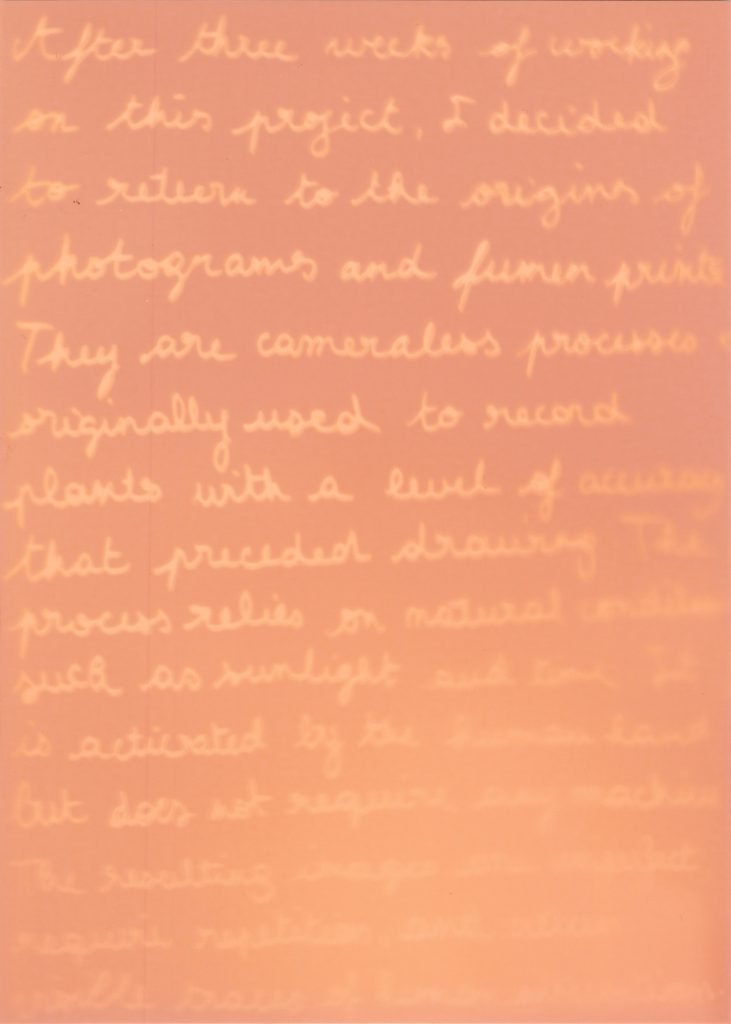 After three weeks of working
on this project, I decided
to return to the origins of
photograms and fumen prints
They are cameraless processes
originally used to record
plants with a level of accuracy
that preceded drawing. The
process relies on natural conditions
such as sunlight and time. It
is activated by the human hand
but does not require any machine
The resulting images are imperfect
require repetition, and
traces of human